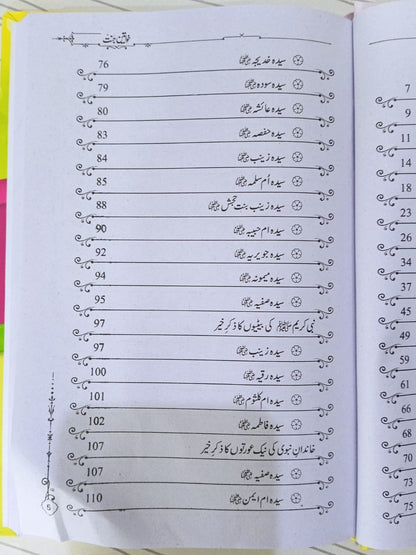 خواتین جنت
سیدہ خدیجہ رضی اللہ عنہا 76
سیدہ سودہ رضی اللہ عنہا 79
سیدہ عائشہ رضی اللہ عنہا 80
سیدہ حفصہ رضی اللہ عنہا 83
سیدہ زینب رضی اللہ عنہا 84
سیدہ اُم سلمہ رضی اللہ عنہا 85
سیدہ زینب بنت جحش رضی اللہ عنہا 88
سیدہ ام حبیبہ رضی اللہ عنہا 90
سیدہ جویریہ رضی اللہ عنہا 92
سیدہ میمونہ رضی اللہ عنہا 94
سیدہ صفیہ رضی اللہ عنہا 95
نبی کریم ﷺ کی بیٹیوں کا ذکرِ خیر 97
سیدہ زینب رضی اللہ عنہا 97
سیدہ رقیہ رضی اللہ عنہا 100
سیدہ ام کلثوم رضی اللہ عنہا 101
سیدہ فاطمہ رضی اللہ عنہا 102
خاندانِ نبوی کی نیک عورتوں کا ذکرِ خیر 107
سیدہ صفیہ رضی اللہ عنہا 107
سیدہ ام ایمن رضی اللہ عنہا 110
5
7
9
11
11
14
18
23
26
34
37
45
49
51
61
66
68
70
73
75